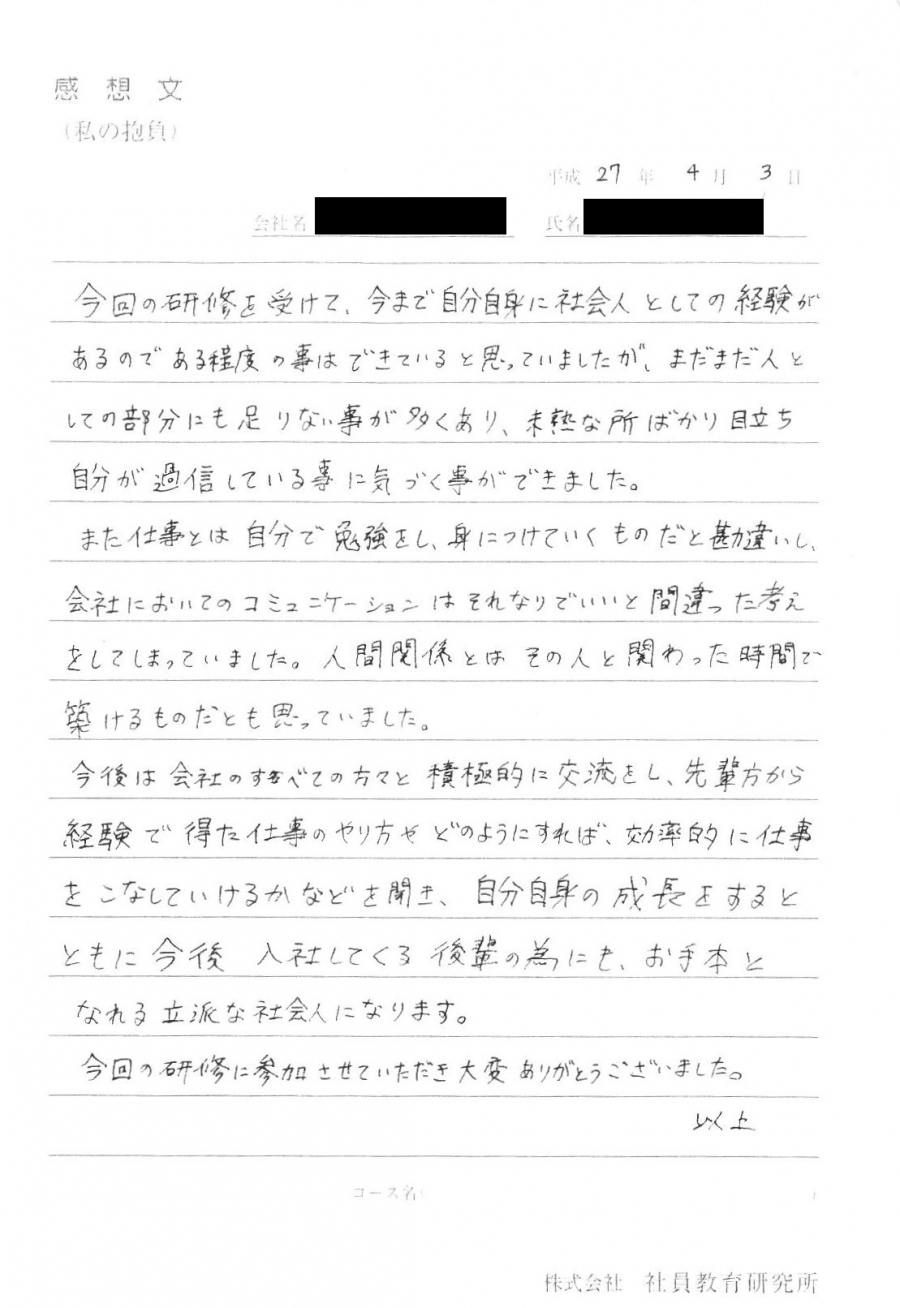 感想文
(私の抱負)
平成 27 年 4 月 3 日
会社名 氏名
今回の研修を受けて、今まで自分自身に社会人としての経験が
あるのである程度の事はできていると思っていましたが、まだまだ人と
しての部分にも足りない事が多くあり、未熟な所ばかり目立ち
自分が過信している事に気づく事ができました。
また仕事とは自分で勉強をし、身につけていくものだと勘違いし、
会社においてのコミュニケーションはそれなりでいいと間違った考え
をしてしまっていました。人間関係とはその人と関わった時間で
築けるものだとも思っていました。
今後は会社のすべての方々と積極的に交流をし、先輩方から
経験で得た仕事のやり方やどのようにすれば、効率的に仕事
をこなしていけるかなどを聞き、自分自身の成長をすると
ともに今後 入社してくる後輩の為にも、お手本と
なれる立派な社会人になります。
今回の研修に参加させていただき大変ありがとうございました。
以上
コース名( )
株式会社 社員教育研究所